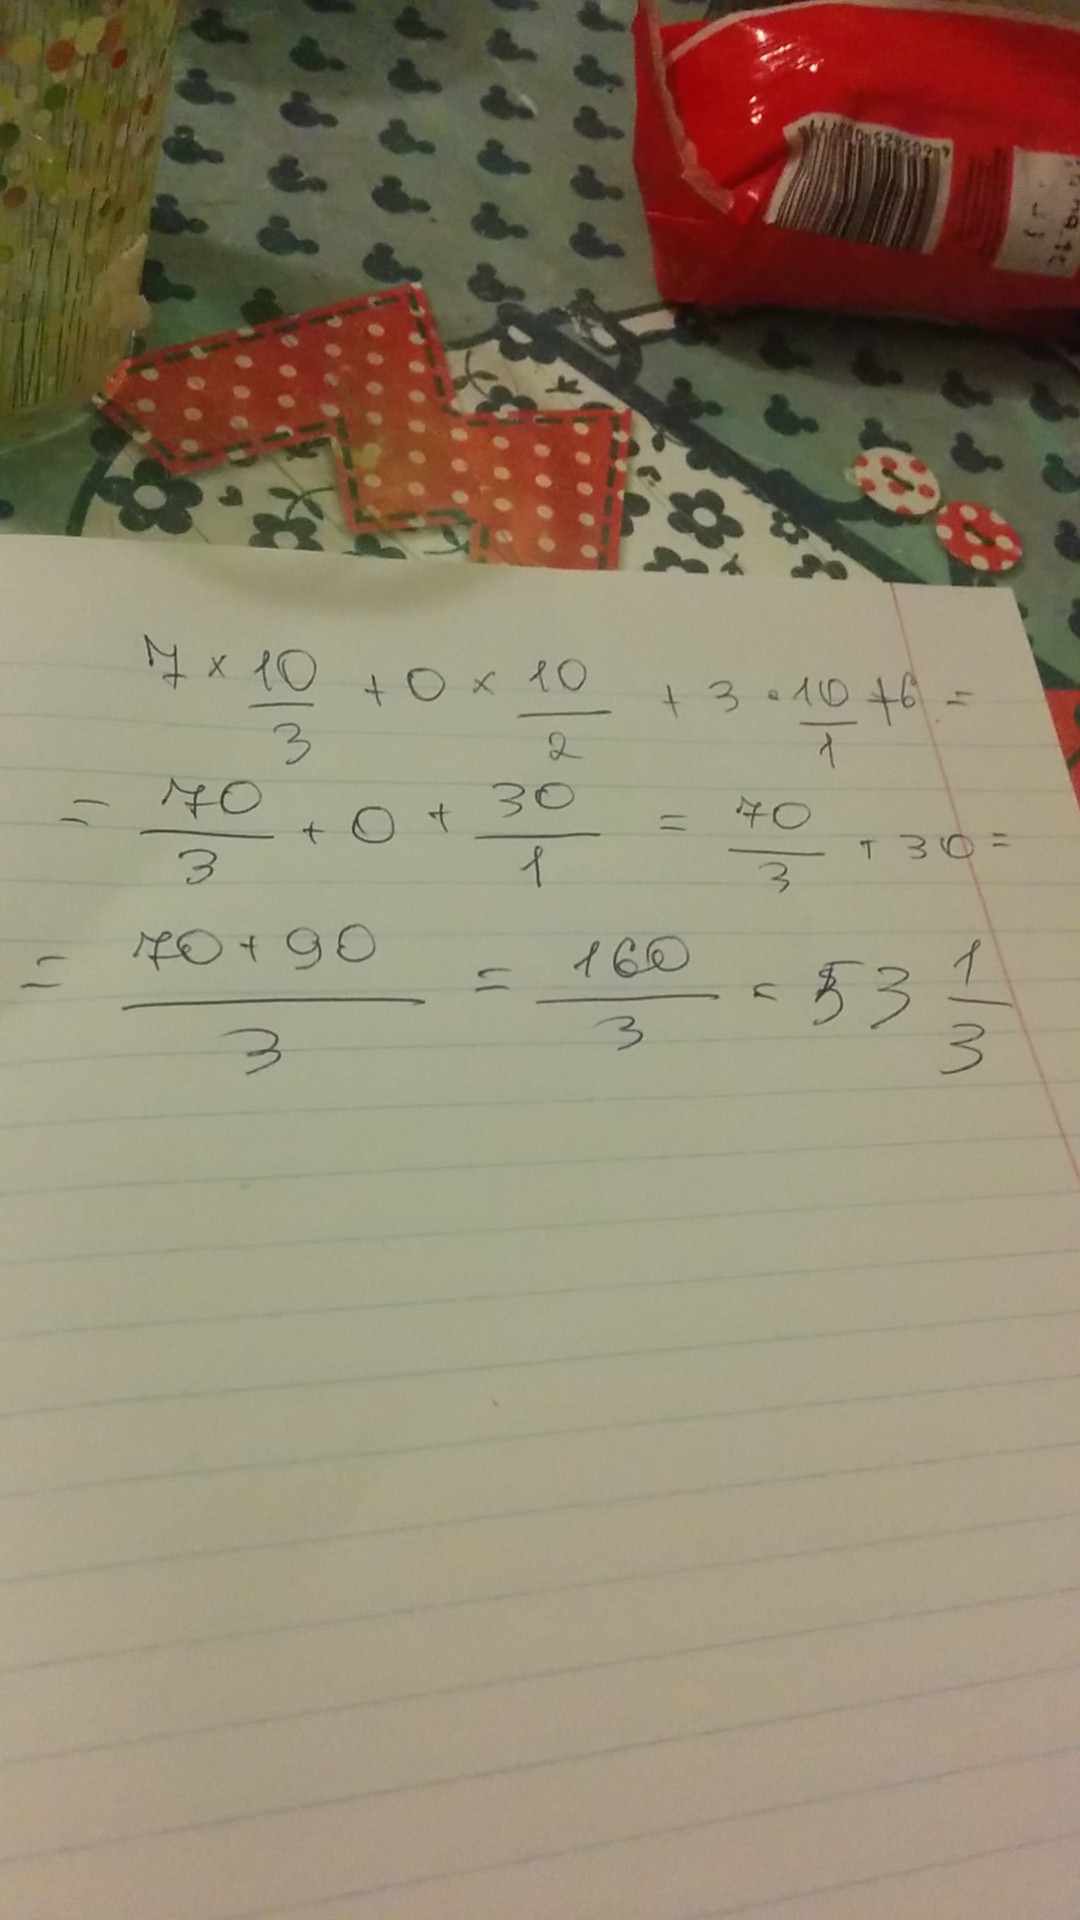 7 × 10/3 + 0 × 10/2 + 3 · 10/1 + 6 =
= 70/3 + 0 + 30/1 = 70/3 + 30 =
= (70 + 90)/3 = 160/3 = 53 1/3